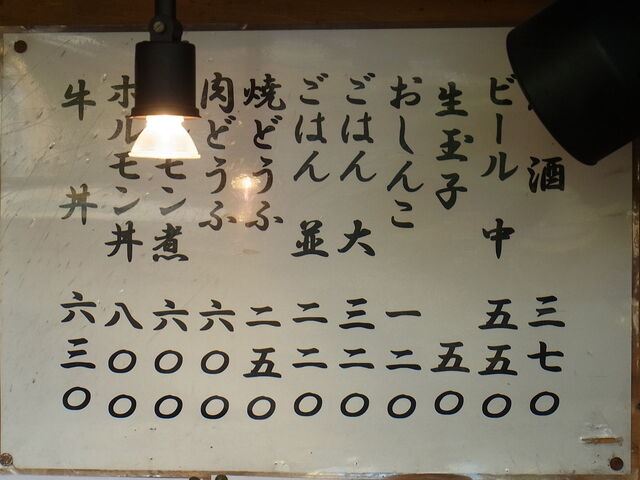 酒 三七〇
ビール 中 五五〇
生玉子 五〇
おしんこ 一二〇
ごはん 大 三二〇
ごはん 並 二二〇
焼どうふ 二五〇
肉どうふ 六〇〇
モン煮 六〇〇
ホルモン丼 八〇〇
牛丼 六三〇